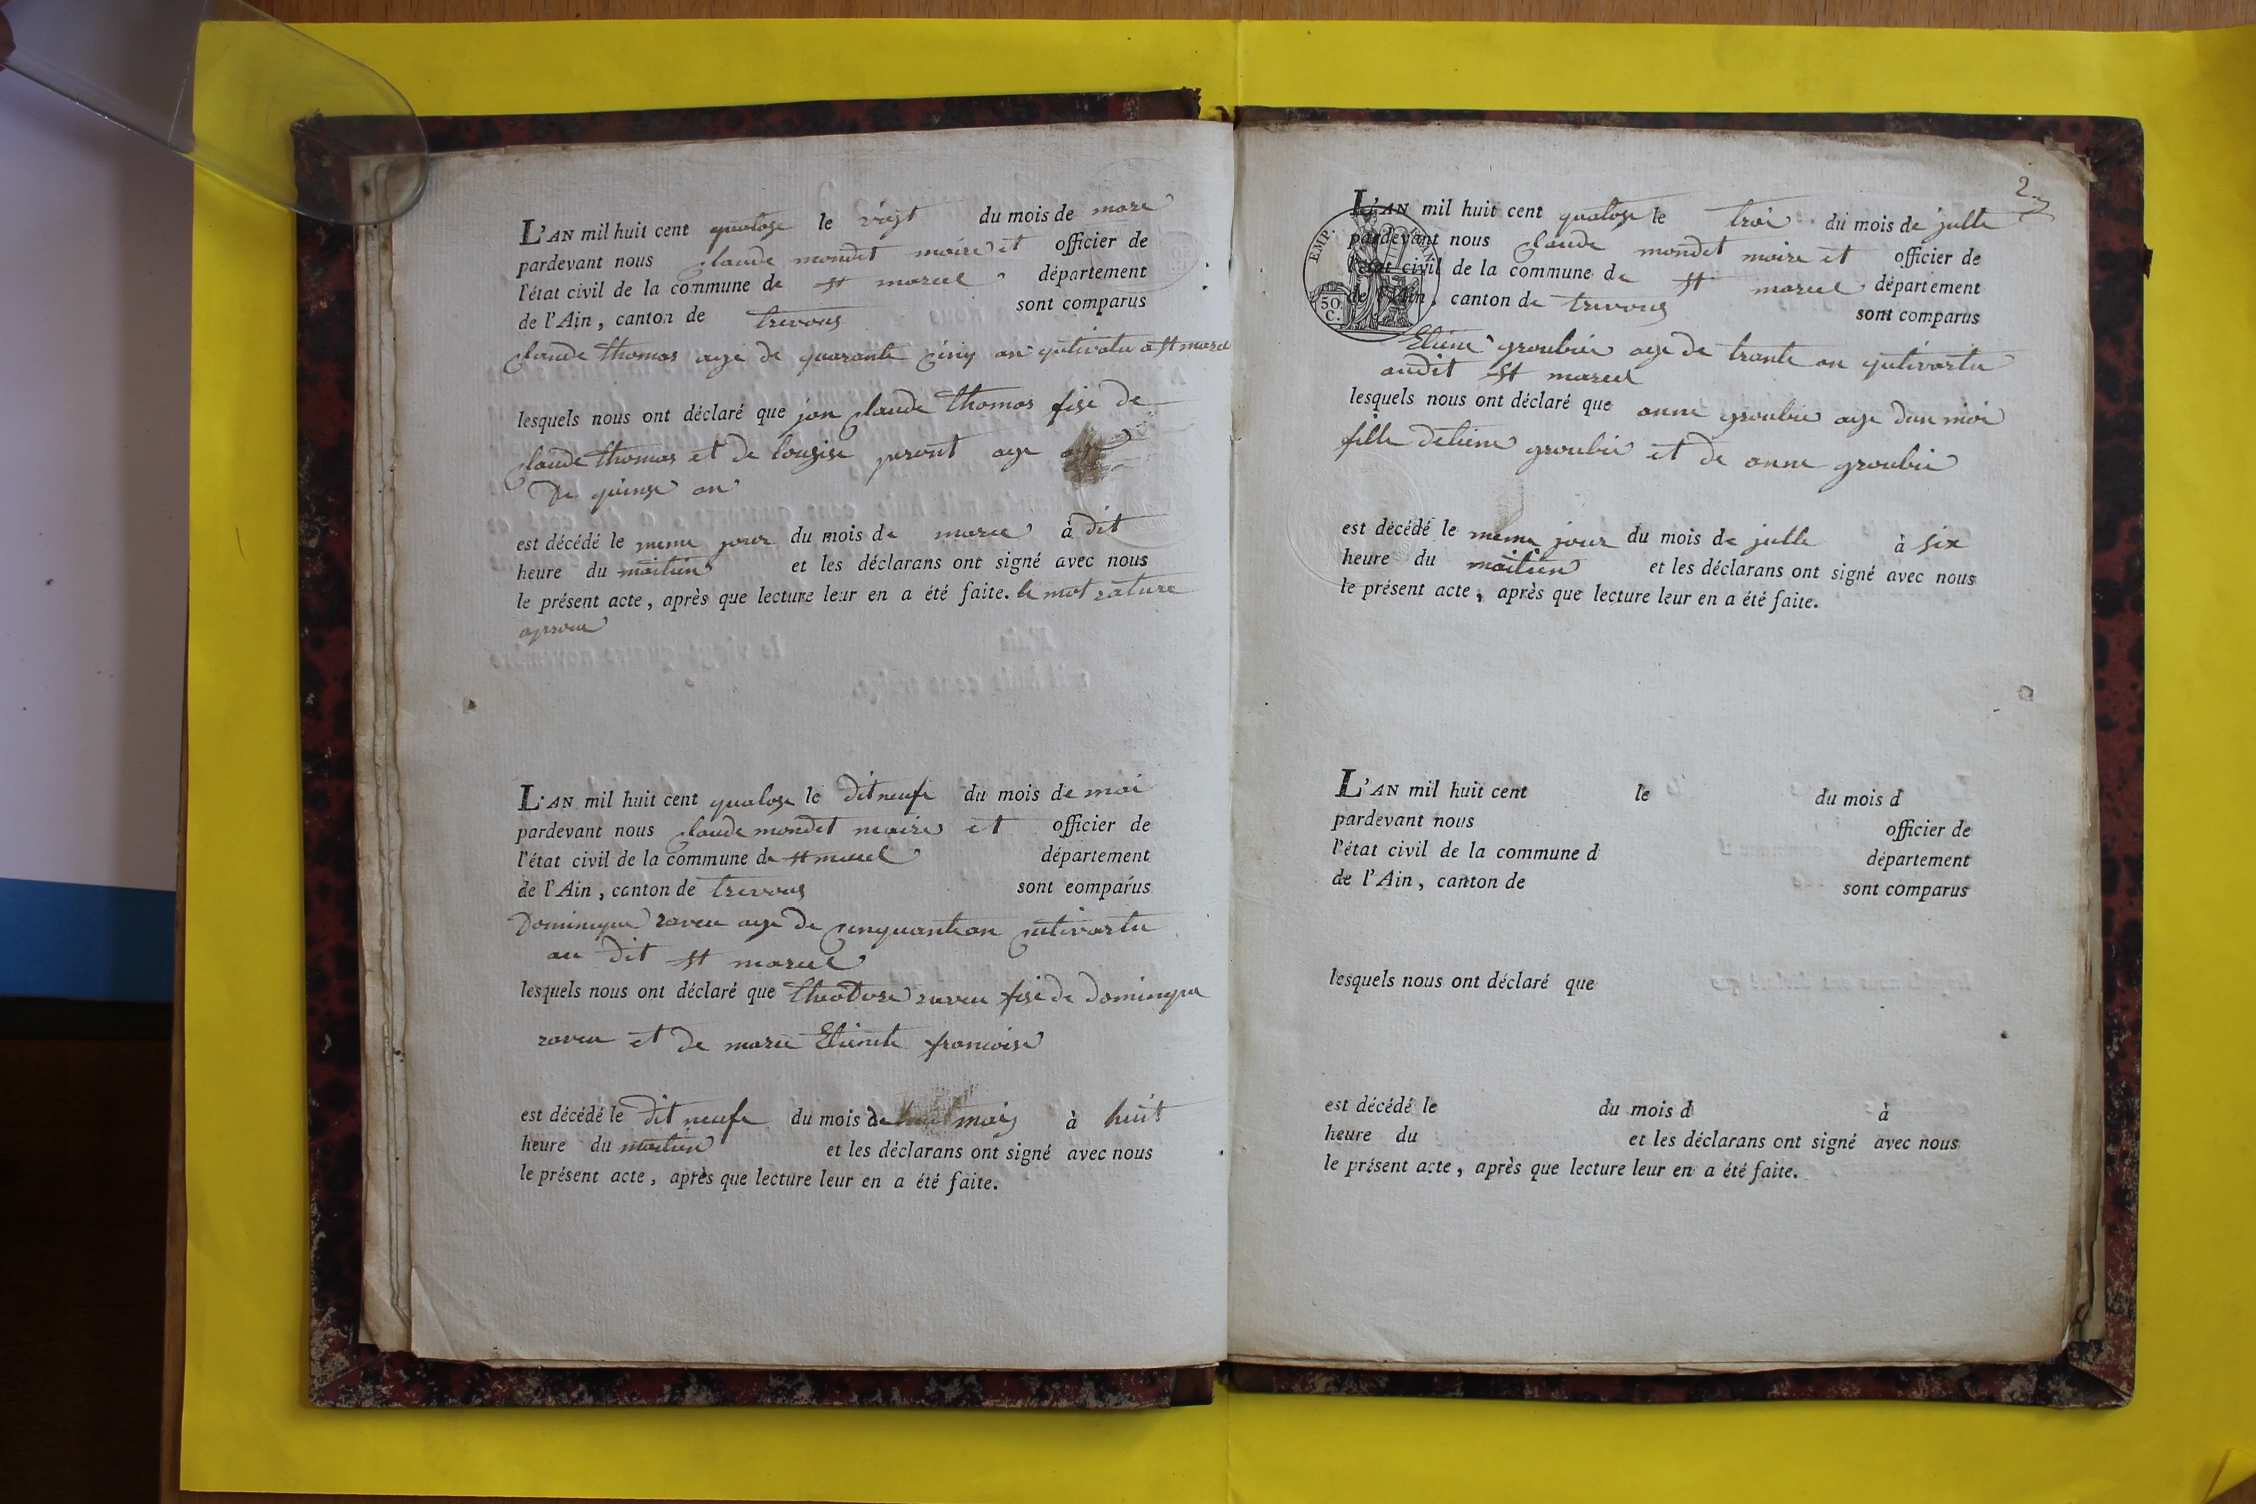 L'AN mil huit cent quatoze le vingt du mois de mare
pardevant nous Claude mondet maire et officier de
l'état civil de la commune de st marcel département
de l'Ain, canton de trevous sont comparus
Claude thomas age de quarante cinq an qutivatu a st marcel
lesquels nous ont déclaré que jan Claude thomas fise de
Claude thomas et de age
De quinze an
est décédé le meme jour du mois de marce à dit
heure du maitien et les déclarans ont signé avec nous
le présent acte, après que lecture leur en a été faite. le mot rature
aprouu
L'AN mil huit cent quatoze le dit neufe du mois de mai
pardevant nous Claude mondet maire et officier de
l'état civil de la commune de st marcel département
de l'Ain, canton de trevous sont comparus
Dominique raveu age de cinquante an cutivartu
au dit st marcel
lesquels nous ont déclaré que theodose raveu fise de dominique
raveu et de marie Etienete francoise
est décédé le dit neufe du mois de mais à huit
heure du maitien et les déclarans ont signé avec nous
le présent acte, après que lecture leur en a été faite.
2
L'AN mil huit cent quatoze le troi du mois de julle
pardevant nous Claude mondet maire et officier de
l'état civil de la commune de st marcel département
de l'Ain, canton de trevous sont comparus
EMP. FRAN.
50 C.
Etiene groubié age de trante an qutivartu
audit st marcel
lesquels nous ont déclaré que anne groubié age dun moi
fille detiene groubié et de anne groubié
est décédé le meme jour du mois de julle à six
heure du maitien et les déclarans ont signé avec nous
le présent acte, après que lecture leur en a été faite.
L'AN mil huit cent le du mois d
pardevant nous officier de
l'état civil de la commune d département
de l'Ain, canton de sont comparus
lesquels nous ont déclaré que
est décédé le du mois d à
heure du et les déclarans ont signé avec nous
le présent acte, après que lecture leur en a été faite.